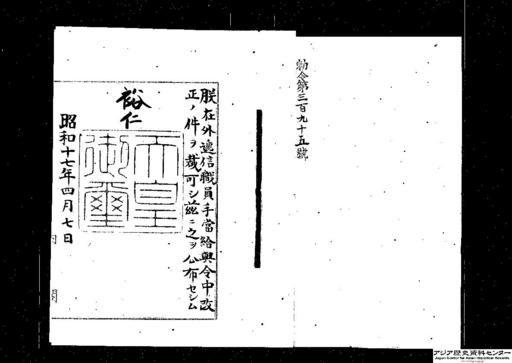 勅令第三百九十五號
朕在外逓信職員手當給與令中改
正ノ件ヲ裁可シ茲ニ之ヲ公布セシム
裕仁
天皇
御璽
昭和十七年四月七日
アジア歴史資料センター
Japan Center for Asian Historical Records